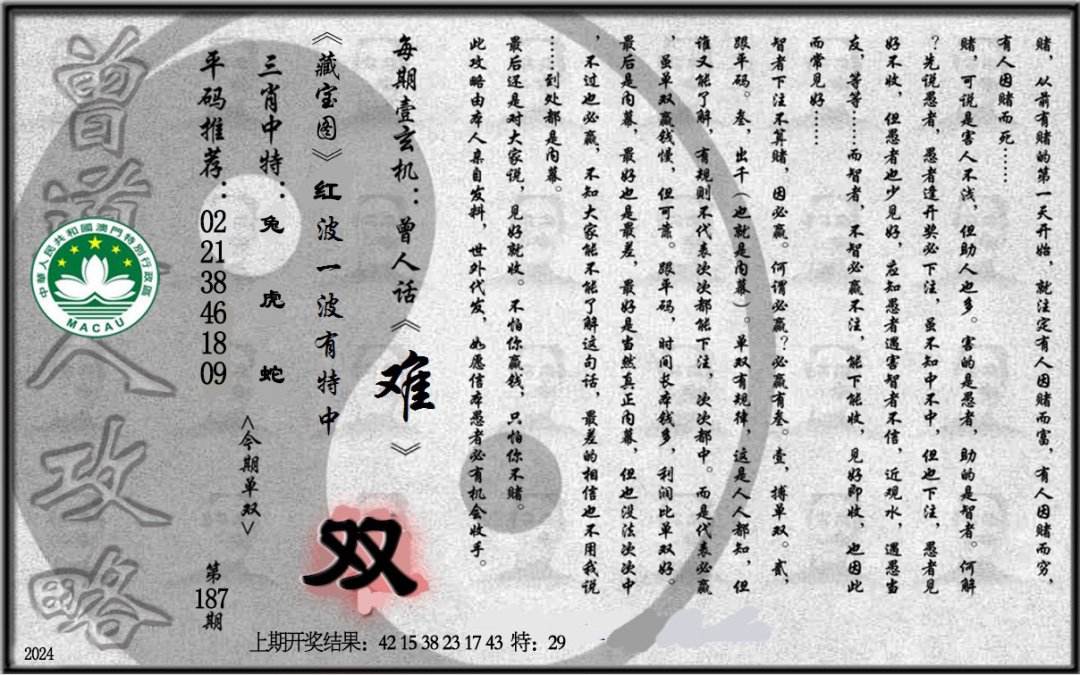 赌，从前有赌的第一天开始，就注定有人因赌而富，有人因赌而穷，
有人因赌而死……
赌，可说是害人不浅，但助人也多。害的是愚者，助的是智者。何解
？先说愚者，愚者逢开奖必下注，虽不知中不中，但也下注，愚者见
好不收，但愚者也少见好，应知愚者遇害智者不信，近观水，遇愚当
友，等等……而智者，不智必赢不注，能下能收，见好即收，也因此
而常见好……
智者下注不算赌，因必赢。何谓必赢？必赢有叁。壹，搏单双。贰，
跟平码。叁，出千（也就是内幕）。单双有规律，这是人人都知，但
谁又能了解，有规则不代表次次都能下注，次次都中。而是代表必赢
，虽单双赢钱慢，但可靠。跟平码，时间长本钱多，利润比单双好。
最后是内幕，最好也是最差，最好是当然真正内幕，但也没法次次中
，不过也必赢，不知大家能不能了解这句话，最差的相信也不用我说
……到处都是内幕。
最后还是对大家说，见好就收。不怕你赢钱，只怕你不赌。
此攻略由本人亲自发料，世外代发，如愿信本愚者必有机会收手。
每期壹玄机：曾人话《难》
《藏宝图》红波一波有特中
双
三肖中特：兔 虎 蛇
<今期单双>
平码推荐：02 21 38 46 18 09
第187期
曾道人攻略
中華人民共和國澳門特別行政區
MACAU
上期开奖结果：42 15 38 23 17 43 特：29
2024